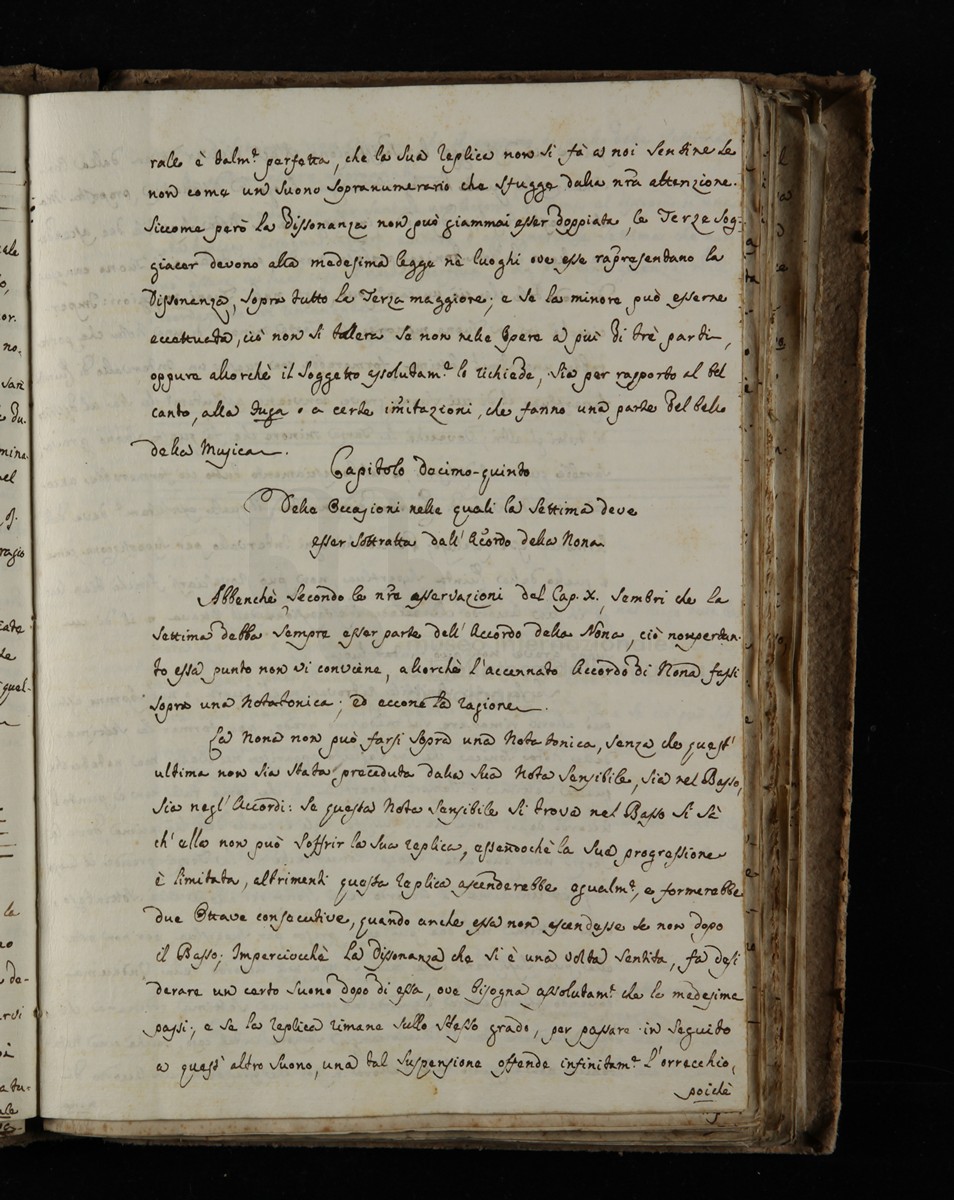 rale è talm.e perfetta, che la sua replica non si fà a noi sentire se
non come un suono sopranumerario che sfugge dalla nra attenzione.
Siccome però la Dissonanza non può giammai esser doppiata, le Terze sog-
giacer devono alla medesima legge nè luoghi ove esse rapresentano la
Dissonanza, sopra tutto la Terza maggiore; e se la minore può esserne
eccettuata, ciò non si tollera se non nelle Opere a più di trè parti,
oppure allorchè il soggetto assolutam.e lo richiede, sia per rapporto al bel
canto, alla fuga o a certe imitazioni, che fanno una parte del bello
della Musica.
Capitolo decimo-quinto
Delle Occasioni nelle quali la settima deve
esser sottratta dall' Acordo della Nona.
Abbenchè secondo le nre osservazioni del Cap. X., sembri che la
settima debba sempre esser parte dell' Accordo della Nona, ciò nonpertan-
to essa punto non vi conviene, allorchè l'accennato Accordo di Nona fassi
sopra una Nota tonica; ed eccone la ragione.
La Nona non può farsi sopra una Nota tonica, senza che quest'
ultima non sia stata preceduta dalla sua Nota sensibile, sia nel Basso,
sia negl' Accordi: se questa Nota sensibile si trova nel Basso si sà
ch' ella non può soffrir la sua replica, essendochè la sua progressione
è limitata, altrimenti questa replica ascenderebbe egualm.e, e formerebbe
due Ottave consecutive, quando anche essa non ascendesse se non dopo
il Basso; Imperciocchè la Dissonanza che si è una volta sentita, fa desi
derare un certo suono dopo di essa, ove bisogna assolutam.e che la medesima
passi; e se la replica rimane sullo stesso grado, per passare in seguito
a quest' altro suono, una tal suspensione offende infinitam.e l'orrecchio,
poichè